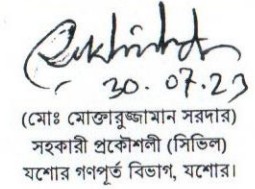 30.07.23
(মোঃ মোক্তারুজ্জামান সরদার)
সহকারী প্রকৌশলী (সিভিল)
যশোর গণপূর্ত বিভাগ, যশোর।